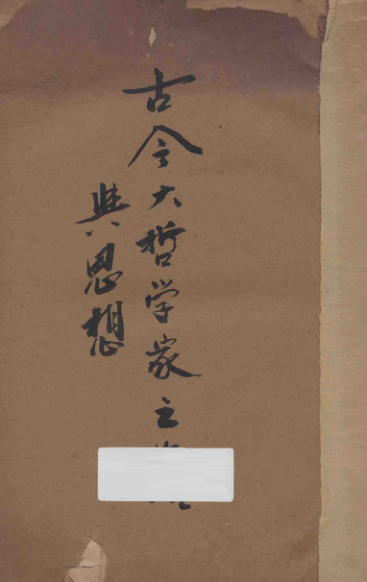 古今大哲学家之
與思想